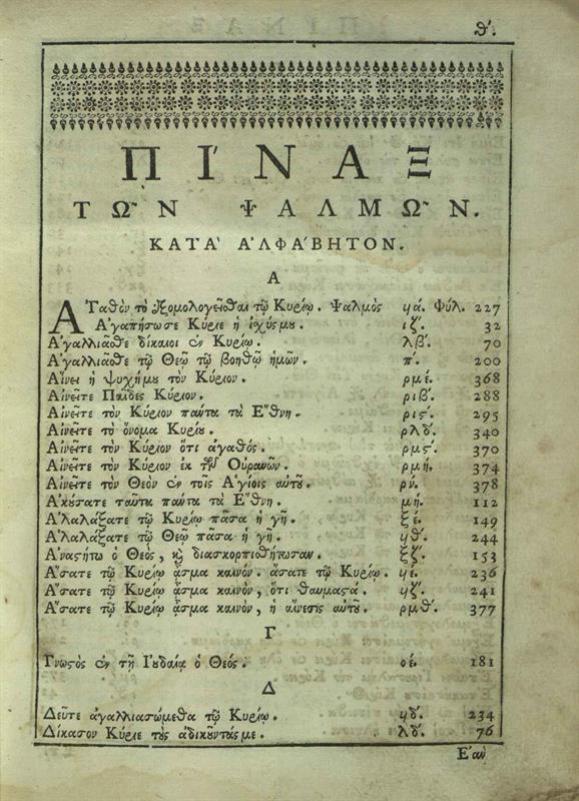 θ΄.
ΠΙ΄ΝΑΞ
ΤΩ͂Ν ΨΑΛΜΩ͂Ν.
ΚΑΤΑ' Α'ΛΦΑ'ΒΗΤΟΝ.
Α
ΑΓαθὸν τὸ ἐξομολογεῖσθαι τῷ Κυρίῳ. Ψαλμὸς ϟά. Φύλ. 227
Ἀγαπήσωσε Κύριε ἡ ἰχύσμου. ιζ΄. 32
Ἀγαλλιᾶσθε δίκαιοι ἐν Κυρίῳ. λβ΄. 70
Ἀγαλλιᾶσθε τῷ Θεῷ τῷ βοηθῷ ἡμῶν. π΄. 200
Αἴνει ἡ ψυχήμου τὸν Κύριον. ρμέ. 368
Αἰνεῖτε Παῖδες Κύριον. ριβ΄. 288
Αἰνεῖτε τὸν Κύριον πάντα τὰ Ἔθνη. ρις΄. 295
Αἰνεῖτε τὸ ὄνομα Κυρίου. ρλδ΄. 340
Αἰνεῖτε τὸν Κύριον ὅτι ἀγαθός. ρμς΄. 370
Αἰνεῖτε τὸν Κύριον ἐκ τῶν Οὐρανῶν. ρμή. 374
Αἰνεῖτε τὸν Θεὸν ἐν τοῖς Ἁγίοις αὐτοῦ. ρν΄. 378
Ἀκούσατε ταῦτα πάντα τὰ Ἔθνη. μή. 112
Ἀλαλάξατε τῷ Κυρίῳ πᾶσα ἡ γῆ. ξέ. 149
Ἀλαλάξατε τῷ Θεῷ πᾶσα ἡ γῆ. ϟθ΄. 244
Ἀναστήτω ὁ Θεός, καὶ διασκορπισθήτωσαν. ξζ΄. 153
Ἄσατε τῷ Κυρίῳ ᾆσμα καινόν. ᾄσατε τῷ Κυρίῳ. ϟέ. 236
Ἄσατε τῷ Κυρίῳ ᾆσμα καινὸν, ὅτι θαυμαστά. ϟζ΄. 241
Ἄσατε τῷ Κυρίῳ ᾆσμα καινὸν, ἡ αἴνεσις αὐτοῦ. ρμθ΄. 377
Γ
Γνωστὸς ἐν τῇ Ἰουδαίᾳ ὁ Θεός. οέ. 181
Δ
Δεῦτε ἀγαλλιασώμεθα τῷ Κυρίῳ. ϟδ΄. 234
Δίκασον Κύριε τοὺς ἀδικοῦντάς με. λδ΄. 76
Ἐὰν